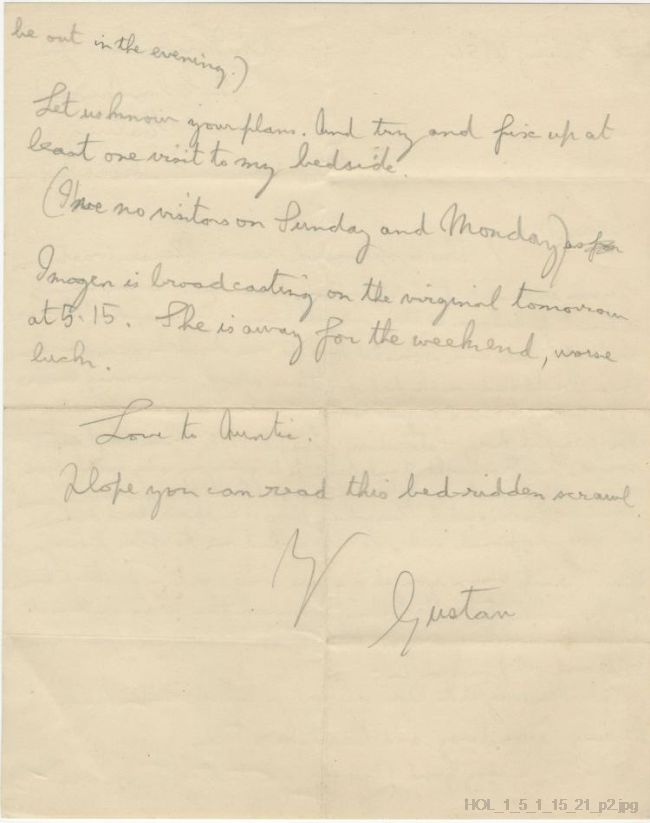 be out in the evening.)
Let us know your plans. And try and fix up at
least one visit to my bedside.
(I've no visitors on Sunday and Monday) so far
Imogen is broadcasting on the virginal tomorrow
at 5.15. She is away for the weekend, worse
luck.
Love to Auntie.
Hope you can read this bed-ridden scrawl
Yr
Gustav
HOL_1_5_1_15_21_p2.jpg